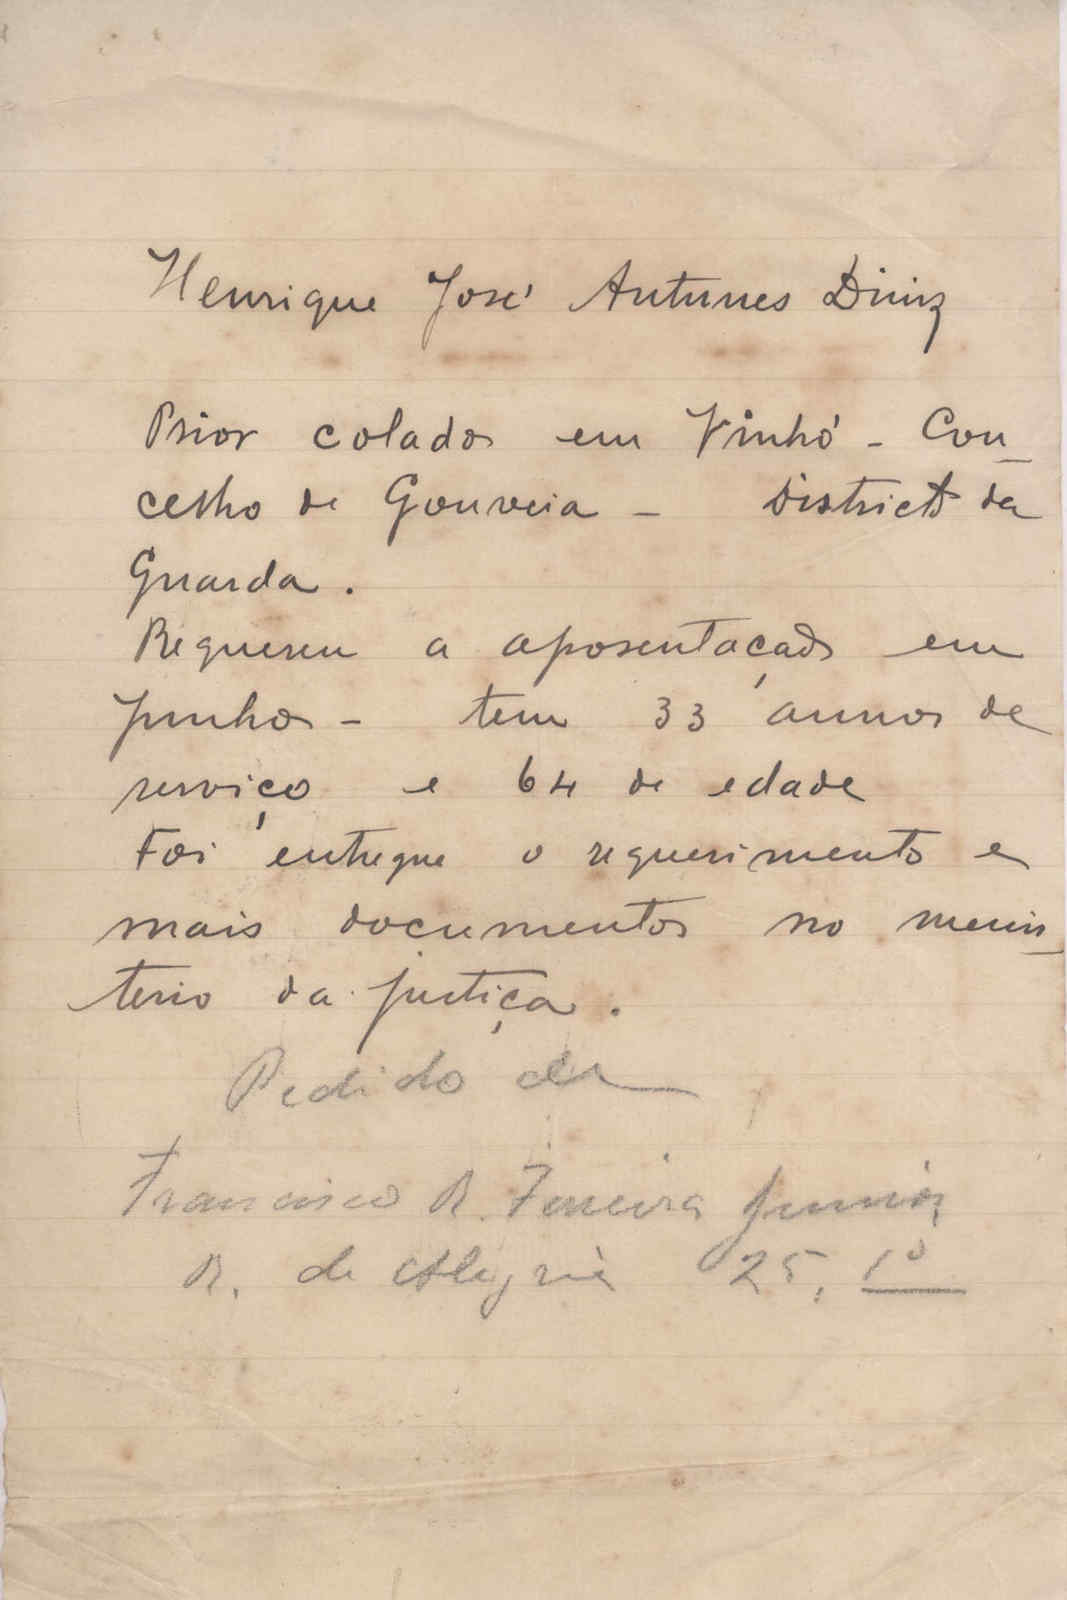 Henrique José Antunes Diniz
Prior colado em Vinhó - Con-
celho de Gouveia - Districto da
Guarda.
Requereu a aposentação em
Junho - tem 33 annos de
serviço e 64 de edade
Foi entregue o requerimento e
mais documentos no menis-
terio da justiça.
Pedido de
Francisco R. Ferreira Junior
R. de Alegria 25, 1º